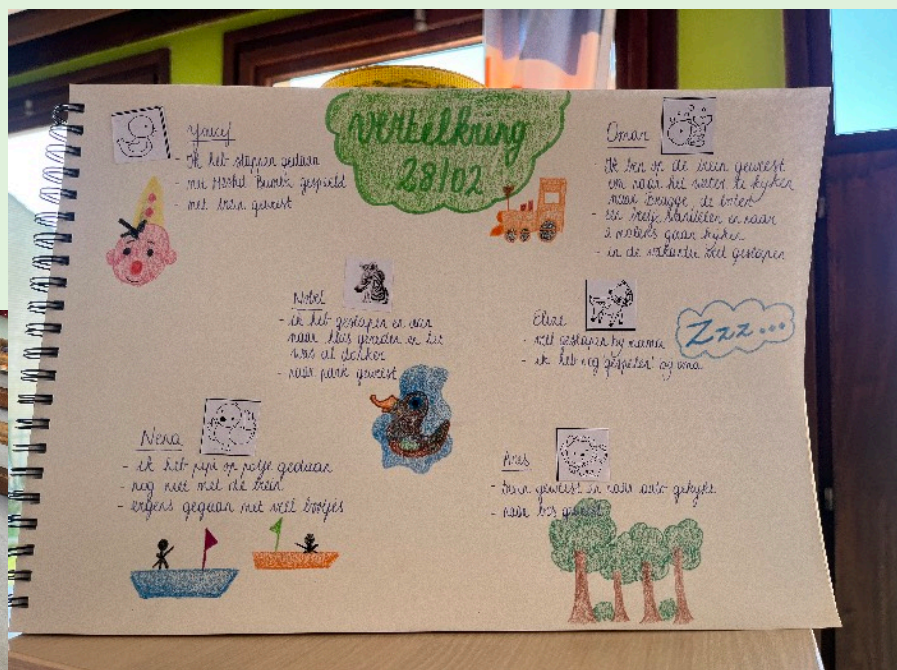 Vertelkring
28/02
- ik heb stappen gedaan
- met Mashel Bumba gespeeld
- met trein geweest
Omar
- Ik ben op de trein geweest
om naar het water te kijken
naar Brugge de boten
- een beetje wandelen en naar
2 molens gaan kijken
- in de vakantie veel geslapen
Nobel
- ik heb geslapen en dan
naar huis gereden en het
was al donker
- naar park geweest
Elize
- niet geslapen bij mama
- ik heb nog gespeeld bij oma
Zzz...
Nena
- ik heb pipi op potje gedaan
- nog niet met de trein
- ergens gegaan met veel bootjes
Ares
- trein geweest en naar auto gekijkt
- naar bos geweest